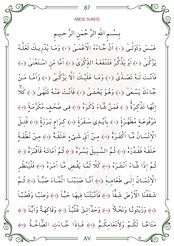 87
ABESE SURESİ
بِسْمِ اللّٰهِ الرَّحْمٰنِ الرَّحِيمِ
عَبَسَ وَتَوَلّٰى ﴿١﴾ اَنْ جَاءَهُ الْاَعْمٰى ﴿٢﴾ وَمَا يُدْرِيكَ لَعَلَّهُ
يَزَّكّٰى ﴿٣﴾ اَوْ يَذَّكَّرُ فَتَنْفَعَهُ الذِّكْرٰى ﴿٤﴾ اَمَّا مَنِ اسْتَغْنٰى ﴿٥﴾
فَاَنْتَ لَهُ تَصَدّٰى ﴿٦﴾ وَمَا عَلَيْكَ اَلَّا يَزَّكّٰى ﴿٧﴾ وَاَمَّا مَنْ
جَاءَكَ يَسْعٰى ﴿٨﴾ وَهُوَ يَخْشٰى ﴿٩﴾ فَاَنْتَ عَنْهُ تَلَهّٰى ﴿١٠﴾ كَلَّا
اِنَّهَا تَذْكِرَةٌ ﴿١١﴾ فَمَنْ شَاءَ ذَكَرَهُ ﴿١٢﴾ فِي صُحُفٍ مُكَرَّمَةٍ ﴿١٣﴾
مَرْفُوعَةٍ مُطَهَّرَةٍ ﴿١٤﴾ بِاَيْدِي سَفَرَةٍ ﴿١٥﴾ كِرَامٍ بَرَرَةٍ ﴿١٦﴾ قُتِلَ
الْاِنْسَانُ مَا اَكْفَرَهُ ﴿١٧﴾ مِنْ اَيِّ شَيْءٍ خَلَقَهُ ﴿١٨﴾ مِنْ نُطْفَةٍ
خَلَقَهُ فَقَدَّرَهُ ﴿١٩﴾ ثُمَّ السَّبِيلَ يَسَّرَهُ ﴿٢٠﴾ ثُمَّ اَمَاتَهُ فَاَقْبَرَهُ ﴿٢١﴾
ثُمَّ اِذَا شَاءَ اَنْشَرَهُ ﴿٢٢﴾ كَلَّا لَمَّا يَقْضِ مَا اَمَرَهُ ﴿٢٣﴾ فَلْيَنْظُرِ
الْاِنْسَانُ اِلٰى طَعَامِهِ ﴿٢٤﴾ اَنَّا صَبَبْنَا الْمَاءَ صَبًّا ﴿٢٥﴾ ثُمَّ
شَقَقْنَا الْاَرْضَ شَقًّا ﴿٢٦﴾ فَاَنْبَتْنَا فِيهَا حَبًّا ﴿٢٧﴾ وَعِنَبًا وَقَضْبًا ﴿٢٨﴾
وَزَيْتُونًا وَنَخْلًا ﴿٢٩﴾ وَحَدَائِقَ غُلْبًا ﴿٣٠﴾ وَفَاكِهَةً وَاَبًّا ﴿٣١﴾
مَتَاعًا لَكُمْ وَلِاَنْعَامِكُمْ ﴿٣٢﴾ فَاِذَا جَاءَتِ الصَّاخَّةُ ﴿٣٣﴾
٨٧